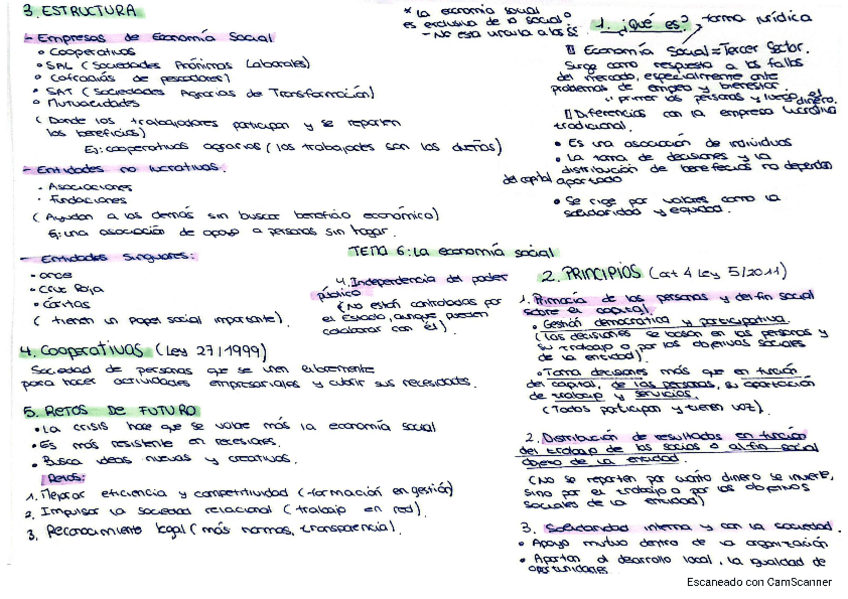 TEMA 6: La economía social
* La economía social
es exclusiva de lo social o
1. ¿Qué es? forma jurídica
Economía Social = Tercer Sector.
Surge como respuesta a los fallos
del mercado, especialmente ante
problemas de empleo y bienestar.
primer las personas y luego el
dinero.
Diferencias con la empresa lucrativa
tradicional.
• Es una asociación de individuos
• La toma de decisiones y la
distribución de beneficios no dependen
del capital aportado
• Se rige por valores como la
solidaridad y equidad.
2. PRINCIPIOS (art 4 Ley 5/2011)
1. Primacía de las personas y del fin social
sobre el capital.
• Gestión democrática y participativa
(Las decisiones se basan en las personas y
su trabajo o por los objetivos sociales
de la entidad).
• Toma decisiones más que en función
del capital, de las personas, su aportación
de trabajo y servicios.
(Todos participan y tienen voz).
2. Distribución de resultados en función
del trabajo de los socios o al fin social
objeto de la entidad.
(No se reparten por cuánto dinero se invierte,
sino por el trabajo o por los objetivos
sociales de la entidad)
3. Solidaridad interna y con la sociedad.
• Apoyo mutuo dentro de la organización
• Aportan al desarrollo local, la igualdad de
oportunidades
4. Independencia del poder
público
(No están controladas por
el Estado, aunque pueden
colaborar con él).
3. ESTRUCTURA
- Empresas de Economía Social
• Cooperativas
• SAL (Sociedades Anónimas Laborales)
• Cofradías de pescadores)
• SAT (Sociedades Agrarias de Transformación)
• Mutualidades
(Donde los trabajadores participan y se reparten
los beneficios)
Ej: cooperativas agrarias (los trabajades son los dueños)
- Entidades no lucrativas.
• Asociaciones
• Fundaciones
(Ayudan a los demás sin buscar beneficio económico)
Ej: una asociación de apoyo a personas sin hogar.
- Entidades singulares:
• once
• Cruz Roja
• Cáritas
(tienen un papel social importante).
4. Cooperativas (Ley 27/1999)
Sociedad de personas que se unen libremente
para hacer actividades empresariales y cubrir sus necesidades.
5. RETOS DE FUTURO
• La crisis hace que se valore más la economía social
• Es más resistente en recesiones.
• Busca ideas nuevas y creativas.
Retos:
1. Mejorar eficiencia y competitividad (formación en gestión)
2. Impulsar la sociedad relacional (trabajo en red).
3. Reconocimiento legal (más normas, transparencia).
Escaneado con CamScanner